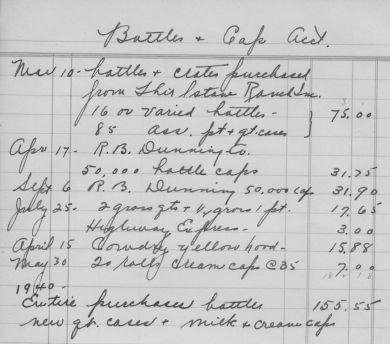 Bottles & Cap Acct.
Mar 10 - bottles + crates purchased
from Ranch Inc.
16 oz varied bottles -
85 ass. pt + qt. cases } 75.00
Apr 17 - R. B. Dunning Co.
50,000 bottle caps 31.75
Sept 6 R. B. Dunning 50,000 caps 31.90
July 25 - 2 gross qts + ½ gross 1 pt. 17.65
Highway Express - 3.00
April 15 Cowdry yellow hood - 15.88
May 30 20 rolls cream caps @ 35 7.00
1940 -
Entire purchases bottles 155.55
new qt. cases + milk + cream caps